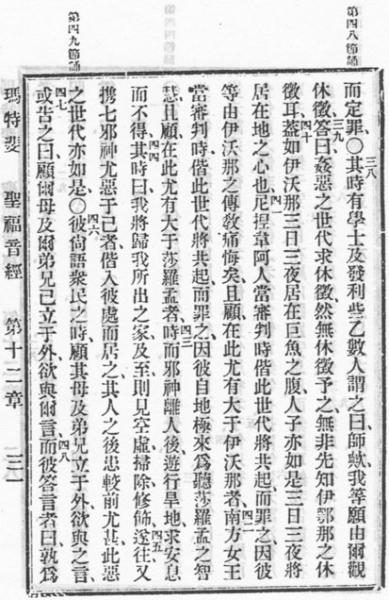 第四八節誦
而定罪、○三八其時有學士及發利些乙數人謂之曰師歟我等願由爾觀
休徵、三九答曰姦惡之世代求休徵然無休徵予之無非先知伊鄂那之休
徵耳、四十蓋如伊沃那三日三夜居在巨魚之腹人子亦如是三日三夜將
居在地之心也、四一尼揑韋阿人當審判時偕此世代將共起而罪之因彼
等由伊沃那之傳教痛悔矣、且顧在此尤有大于伊沃那者、四二南方女王
當審判時偕此世代將共起而罪之、因彼自地極來爲聽莎羅孟之智
慧、且顧在此尤有大于莎羅孟者、四三時而邪神離人後、遊行旱地求安息
而不得、四四其時曰我將歸我所出之家、及至則見空虛掃除修飾、四五遂往又
携七邪神尤惡于己者、偕入彼處而居之、其人之後患較前尤甚、此惡
之世代亦如是、○四六彼尙語衆民之時、顧其母及弟兄立于外、欲與之言、
四七或告之曰、顧爾母及爾弟兄已立于外、欲與爾言、四八而彼答言者曰、孰爲
第四九節誦
瑪特斐 聖福音經 第十二章 三一